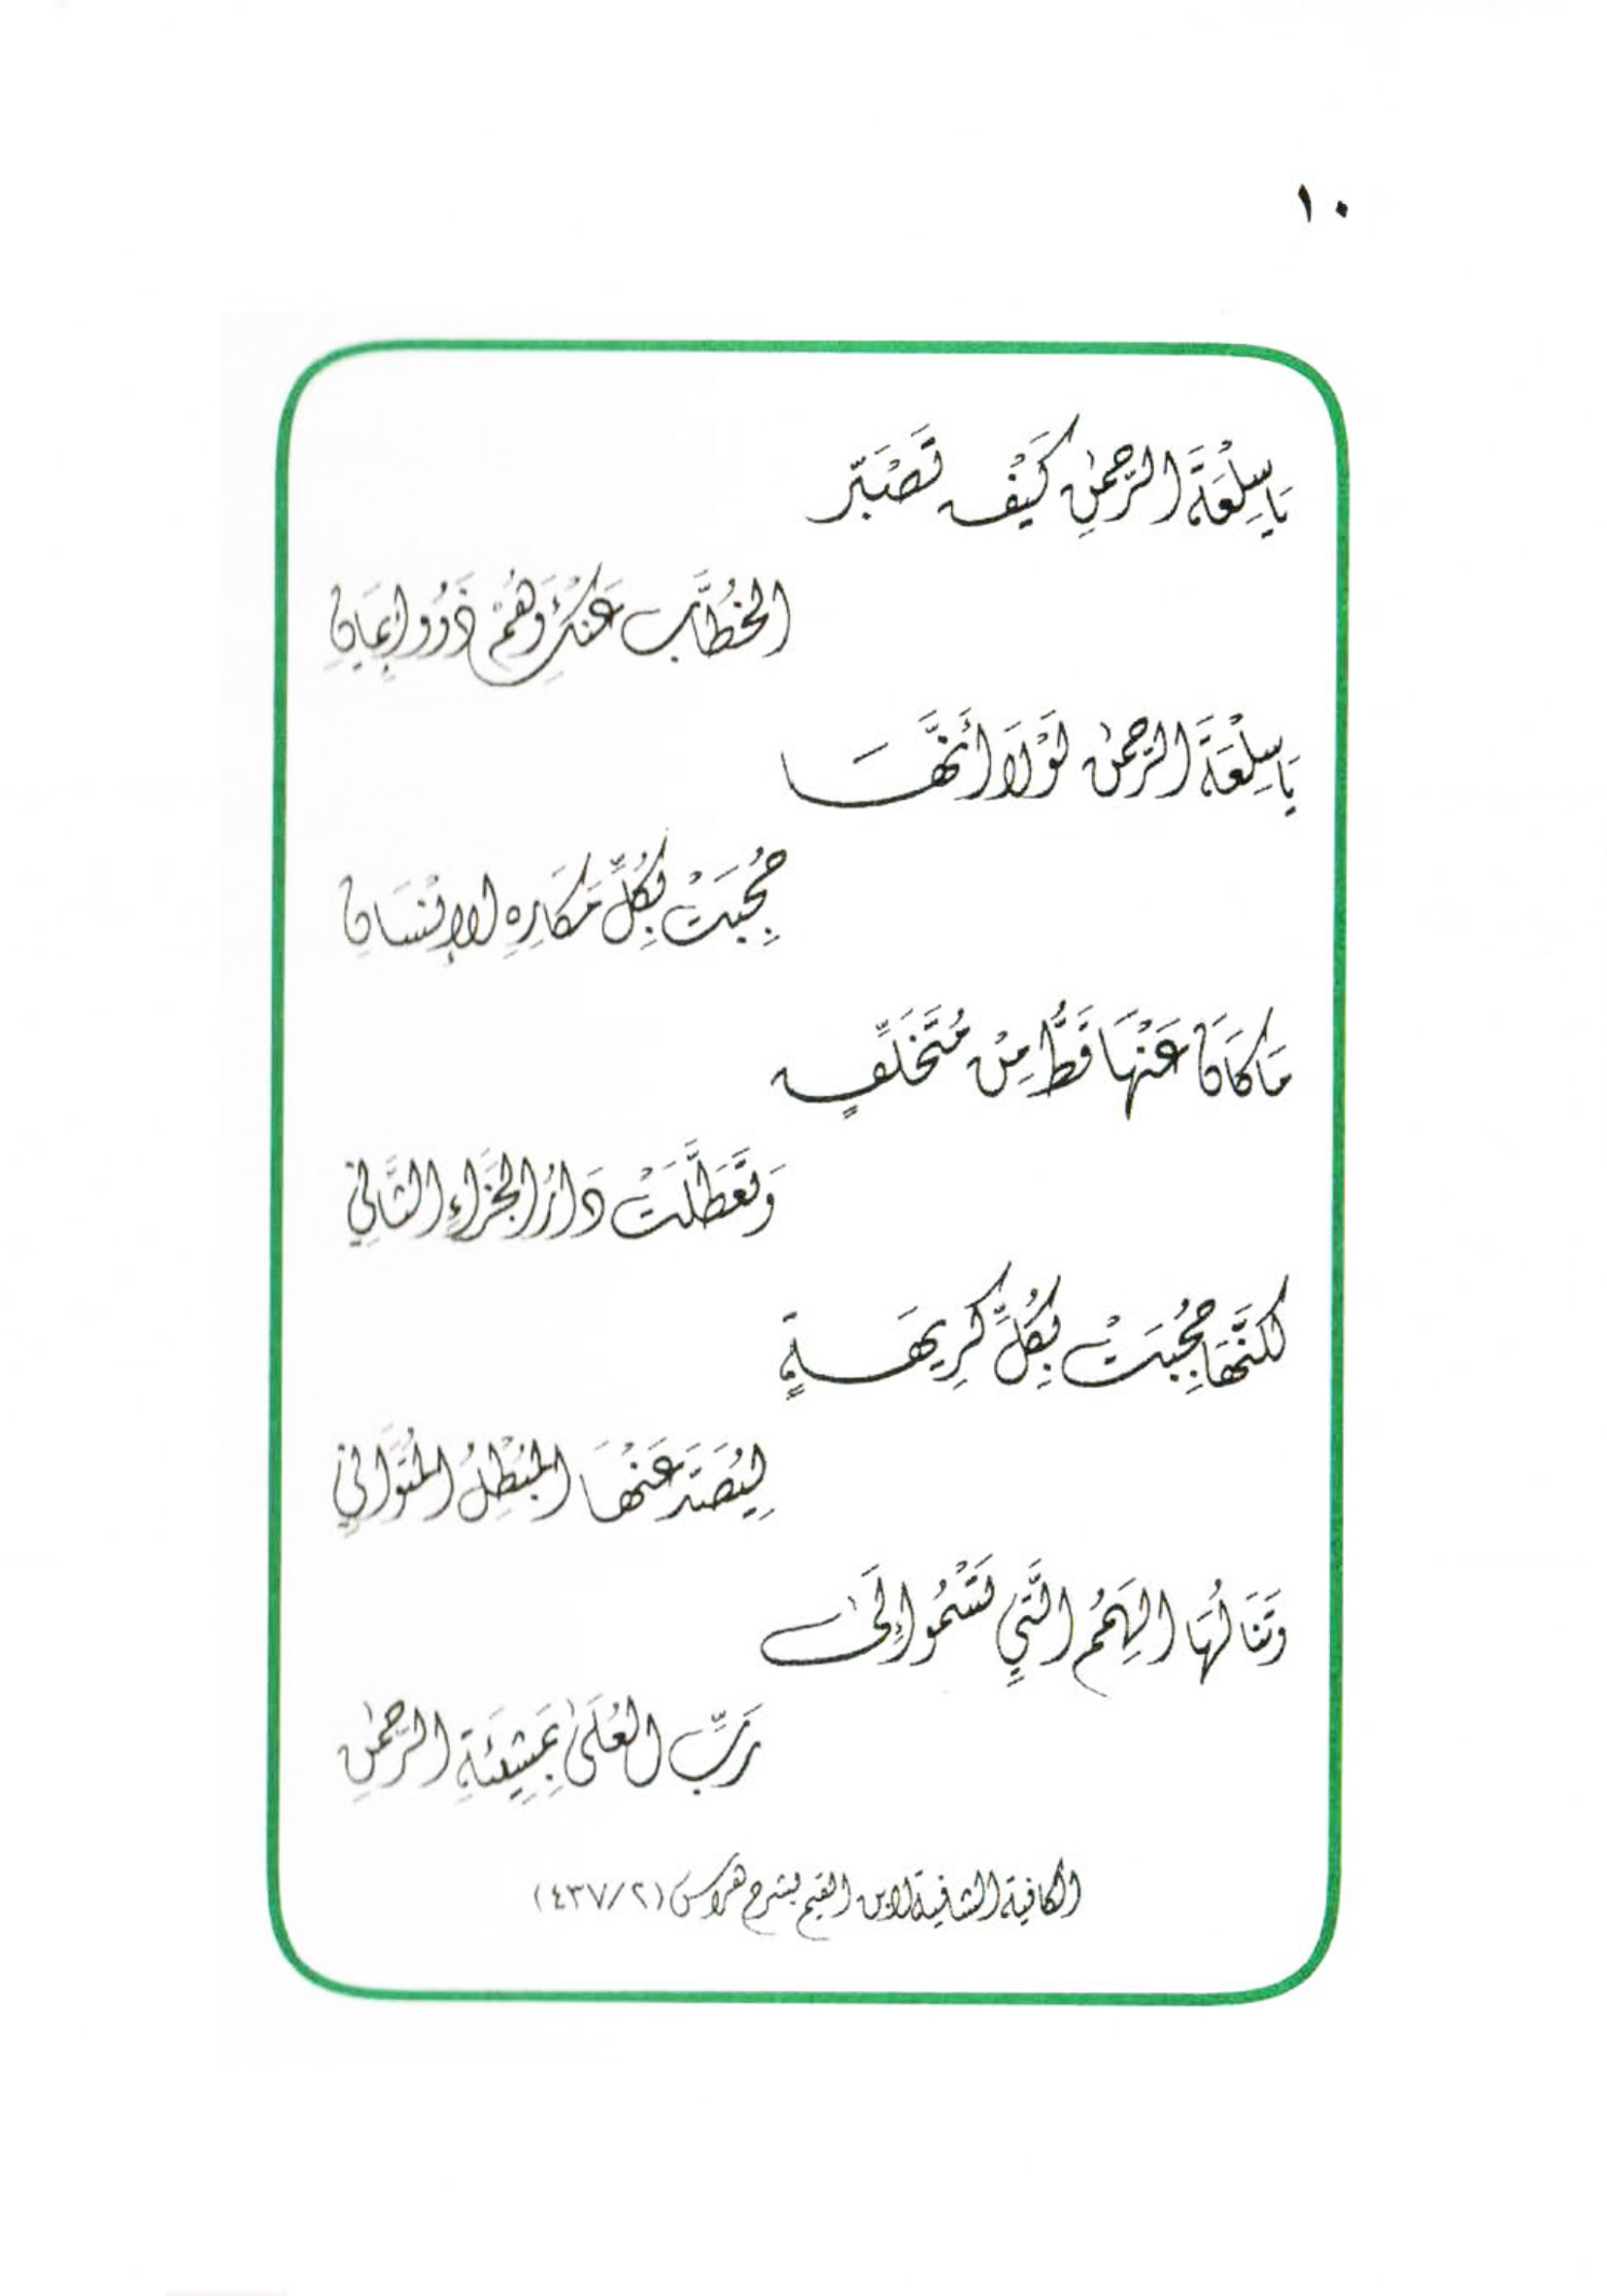 ١٠
يَا سِلْعَةَ الرَّحْمٰنِ كَيْفَ تَصَبَّر
الخُطَّابُ عَنْكِ وَهُمْ ذَوُو إِيمَانِ
يَا سِلْعَةَ الرَّحْمٰنِ لَوْلَا أَنَّهَا
حُجِبَتْ بِكُلِّ مَكَارِهِ الإِنْسَانِ
مَا كَانَ عَنْهَا قَطُّ مِنْ مُتَخَلِّفٍ
وَتَعَطَّلَتْ دَارُ الجَزَاءِ الثَّانِي
لٰكِنَّهَا حُجِبَتْ بِكُلِّ كَرِيهَةٍ
لِيُصَدَّ عَنْهَا المُبْطِلُ المُتَوَانِي
وَتَنَالُهَا الهِمَمُ الَّتِي تَسْمُو إِلَىٰ
رَبِّ العُلَىٰ بِمَشِيئَةِ الرَّحْمٰنِ
الكافية الشافية لابن القيم بشرح هراس (٤٣٧/٢)